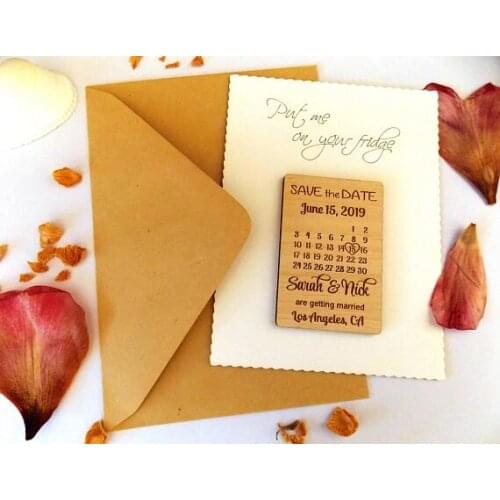 Put me
on your fridge
SAVE the DATE
June 15, 2019
1 2
3 4 5 6 7 8 9
10 11 12 13 14 15 16
17 18 19 20 21 22 23
24 25 26 27 28 29 30
Sarah & Nick
are getting married
Los Angeles, CA